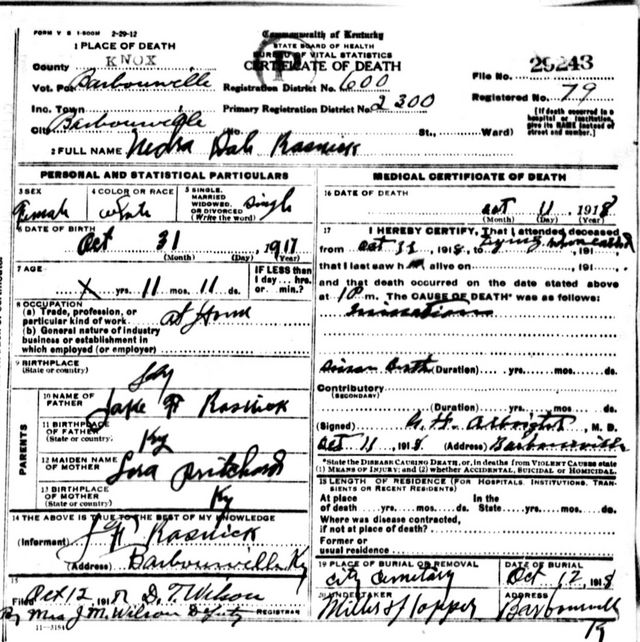 FORM V S 1-500M 2-29-12
Commonwealth of Kentucky
STATE BOARD OF HEALTH
BUREAU OF VITAL STATISTICS
CERTIFICATE OF DEATH
1 PLACE OF DEATH
County KNOX
Vot. Pct Barbourville
Registration District No. 600
File No. 29243
Inc. Town
Primary Registration District No. 2300
Registered No. 79
City Barbourville St., Ward)
[If death occurred in a hospital or institution, give its NAME instead of street and number.]
2 FULL NAME Nedra Dale Rasnick
PERSONAL AND STATISTICAL PARTICULARS
3 SEX Female
4 COLOR OR RACE White
5 SINGLE, MARRIED WIDOWED, OR DIVORCED (Write the word) Single
6 DATE OF BIRTH
Oct 31 1917
(Month) (Day) (Year)
7 AGE
X yrs. 11 mos. 11 ds.
IF LESS than 1 day... hrs. or min.?
8 OCCUPATION
(a) Trade, profession, or particular kind of work At Home
(b) General nature of industry business or establishment in which employed (or employer)
9 BIRTHPLACE
(State or country) Ky
PARENTS
10 NAME OF FATHER Jake F Rasnick
11 BIRTHPLACE OF FATHER (State or country) Ky
12 MAIDEN NAME OF MOTHER Pritchard
13 BIRTHPLACE OF MOTHER (State or country) Ky
14 THE ABOVE IS TRUE TO THE BEST OF MY KNOWLEDGE
(Informant) Rasnick
(Address) Barbourville Ky
15
Filed Oct 12 191 D. T. Wilson
By Mrs J. M. Wilson Deputy REGISTRAR
11-3184
MEDICAL CERTIFICATE OF DEATH
16 DATE OF DEATH
Oct 11 1918
(Month) (Day) (Year)
17 I HEREBY CERTIFY, That I attended deceased
from Oct 11, 1918, to , 191
that I last saw h alive on , 191
and that death occurred on the date stated above
at m. The CAUSE OF DEATH* was as follows:
(Duration) yrs. mos. ds.
Contributory
(SECONDARY)
(Duration) yrs. mos. ds.
(Signed) G. H. Albright, M. D.
Oct 11 1918 (Address) Barbourville
*State the DISEASE CAUSING DEATH, or, in deaths from VIOLENT CAUSES state (1) MEANS OF INJURY; and (2) whether ACCIDENTAL, SUICIDAL or HOMICIDAL.
18 LENGTH OF RESIDENCE (FOR HOSPITALS, INSTITUTIONS, TRANSIENTS OR RECENT RESIDENTS)
At place of death yrs. mos. ds. In the State yrs. mos. ds.
Where was disease contracted, if not at place of death?
Former or usual residence
19 PLACE OF BURIAL OR REMOVAL City Cemetary
DATE OF BURIAL Oct 12 1918
20 UNDERTAKER Miller & Hopper
ADDRESS Barbourville Ky